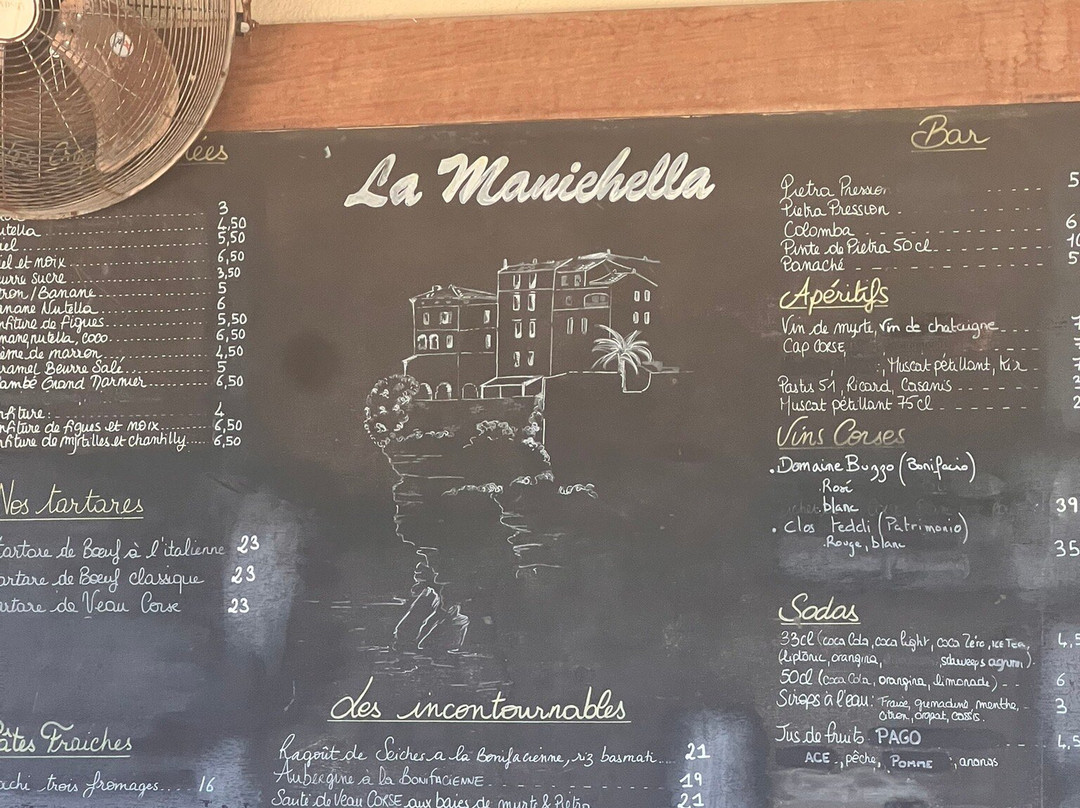 La Manichella
3
utella 4,50
iel 5,50
iel et noix 6,50
eurre sucre 3,50
tron / Banane 5
anane Nutella 6
nfiture de figues 5,50
manq,nutella, coco 6,50
ème de marron 4,50
aramel Beurre Salé 5
ambé Grand Marnier 6,50
nfiture 4
nfiture de figues et noix 6,50
nfiture de myrtilles et chantilly 6,50
Nos tartares
tartare de Bœuf à l'italienne 23
artare de Bœuf classique 23
artare de Veau Corse 23
âtes Fraiches
achi trois fromages 16
Les incontournables
Ragoût de Seiches a la Bonifacienne, riz basmati 21
Aubergine à la Bonifacienne 19
Sauté de Veau CORSE aux baies de myrte & Pietra 21
Bar
Pietra Pression 5
Pietra Pression
Colomba 6
Pinte de Pietra 50cl 10
Panaché 5
Apéritifs
Vin de myrte, vin de chataigne
Cap CORSE,
Muscat pétillant, Kir
Pastis 51, Ricard, Casanis
Muscat pétillant 75cl
Vins Corses
• Domaine Buzzo (Bonifacio)
Rosé
blanc 39
• Clos teddi (Patrimonio)
Rouge, blanc 35
Sodas
33cl (coca Cola, coca light, coca Zéro, ICE TEA, 4,5
orangina, schweps agrum)
50cl (coca Cola, orangina, limonade) 6
Sirops à l'eau: Fraise, grenadine, menthe, 3
citron, orgeat, cassis.
Jus de fruits PAGO 4,5
ACE, pêche, POMME, ananas